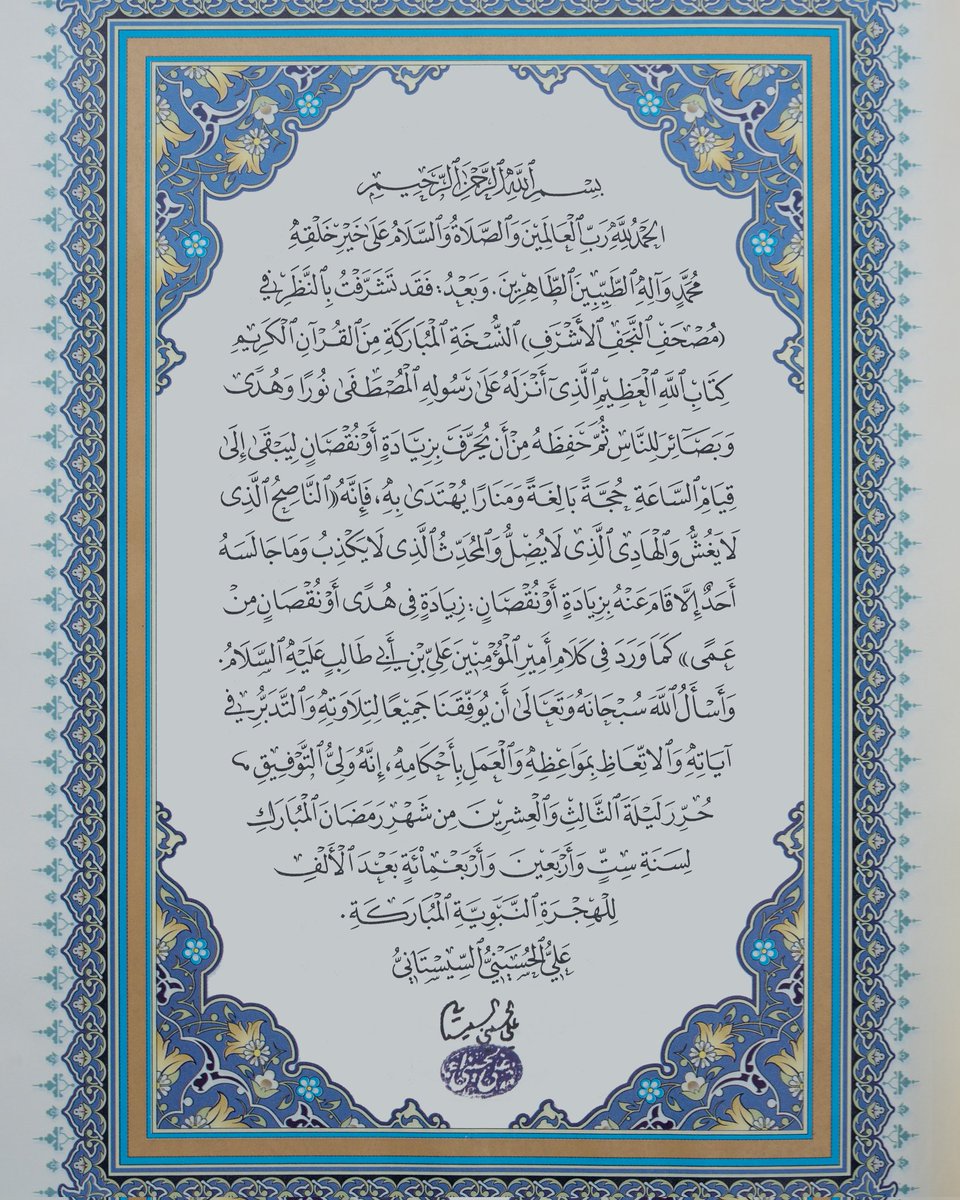 بِسْمِ ٱللَّهِ ٱلرَّحْمَٰنِ ٱلرَّحِيمِ
ٱلْحَمْدُ لِلَّهِ رَبِّ ٱلْعَالَمِينَ وَٱلصَّلَاةُ وَٱلسَّلَامُ عَلَىٰ خَيْرِ خَلْقِهِ
مُحَمَّدٍ وَآلِهِ ٱلطَّيِّبِينَ ٱلطَّاهِرِينَ. وَبَعْدُ: فَقَدْ تَشَرَّفْتُ بِٱلنَّظَرِ فِي
(مُصْحَفِ ٱلنَّجَفِ ٱلْأَشْرَفِ) ٱلنُّسْخَةِ ٱلْمُبَارَكَةِ مِنَ ٱلْقُرْآنِ ٱلْكَرِيمِ
كِتَابِ ٱللَّهِ ٱلْعَظِيمِ ٱلَّذِي أَنْزَلَهُ عَلَىٰ رَسُولِهِ ٱلْمُصْطَفَىٰ نُورًا وَهُدًى
وَبَصَآئِرَ لِلنَّاسِ ثُمَّ حَفِظَهُ مِنْ أَنْ يُحَرَّفَ بِزِيَادَةٍ أَوْ نُقْصَانٍ لِيَبْقَىٰ إِلَىٰ
قِيَامِ ٱلسَّاعَةِ حُجَّةً بَالِغَةً وَمَنَارًا يُهْتَدَىٰ بِهِ، فَإِنَّهُ «ٱلنَّاصِحُ ٱلَّذِي
لَا يَغُشُّ وَٱلْهَادِي ٱلَّذِي لَا يُضِلُّ وَٱلْمُحَدِّثُ ٱلَّذِي لَا يَكْذِبُ وَمَا جَالَسَهُ
أَحَدٌ إِلَّا قَامَ عَنْهُ بِزِيَادَةٍ أَوْ نُقْصَانٍ: زِيَادَةٍ فِي هُدًى أَوْ نُقْصَانٍ مِنْ
عَمًى» كَمَا وَرَدَ فِي كَلَامِ أَمِيرِ ٱلْمُؤْمِنِينَ عَلِيِّ بْنِ أَبِي طَالِبٍ عَلَيْهِ ٱلسَّلَامُ.
وَأَسْأَلُ ٱللَّهَ سُبْحَانَهُ وَتَعَالَىٰ أَنْ يُوَفِّقَنَا جَمِيعًا لِتِلَاوَتِهِ وَٱلتَّدَبُّرِ فِي
آيَاتِهِ وَٱلِاتِّعَاظِ بِمَوَاعِظِهِ وَٱلْعَمَلِ بِأَحْكَامِهِ، إِنَّهُ وَلِيُّ ٱلتَّوْفِيقِ
حُرِّرَ لَيْلَةَ ٱلثَّالِثِ وَٱلْعِشْرِينَ مِنْ شَهْرِ رَمَضَانَ ٱلْمُبَارَكِ
لِسَنَةِ سِتٍّ وَأَرْبَعِينَ وَأَرْبَعْمِائَةٍ بَعْدَ ٱلْأَلْفِ
لِلْهِجْرَةِ ٱلنَّبَوِيَّةِ ٱلْمُبَارَكَةِ.
عَلِيُّ ٱلْحُسَيْنِيُّ ٱلسِّيسْتَانِيُّ
علي الحسيني السيستاني